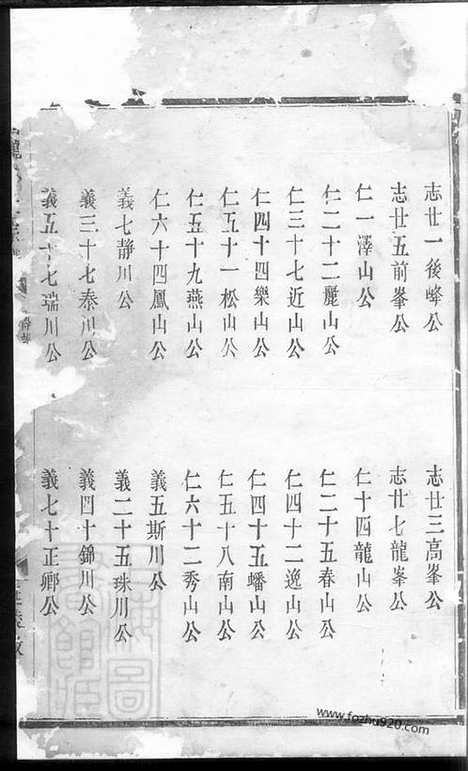 志廿一後峰公　志廿三高峯公
志廿五前峯公　志廿七龍峯公
仁一澤山公　仁十四龍山公
仁二十二麗山公　仁二十五春山公
仁三十七近山公　仁四十二逸山公
仁四十四樂山公　仁四十五蟠山公
仁五十一松山公　仁五十八南山公
仁五十九燕山公　仁六十二秀山公
仁六十四鳳山公　義五斯川公
義七靜川公　義二十五珠川公
義三十七泰川公　義四十錦川公
義五十七瑞川公　義七十正卿公
www.fozhu920.com